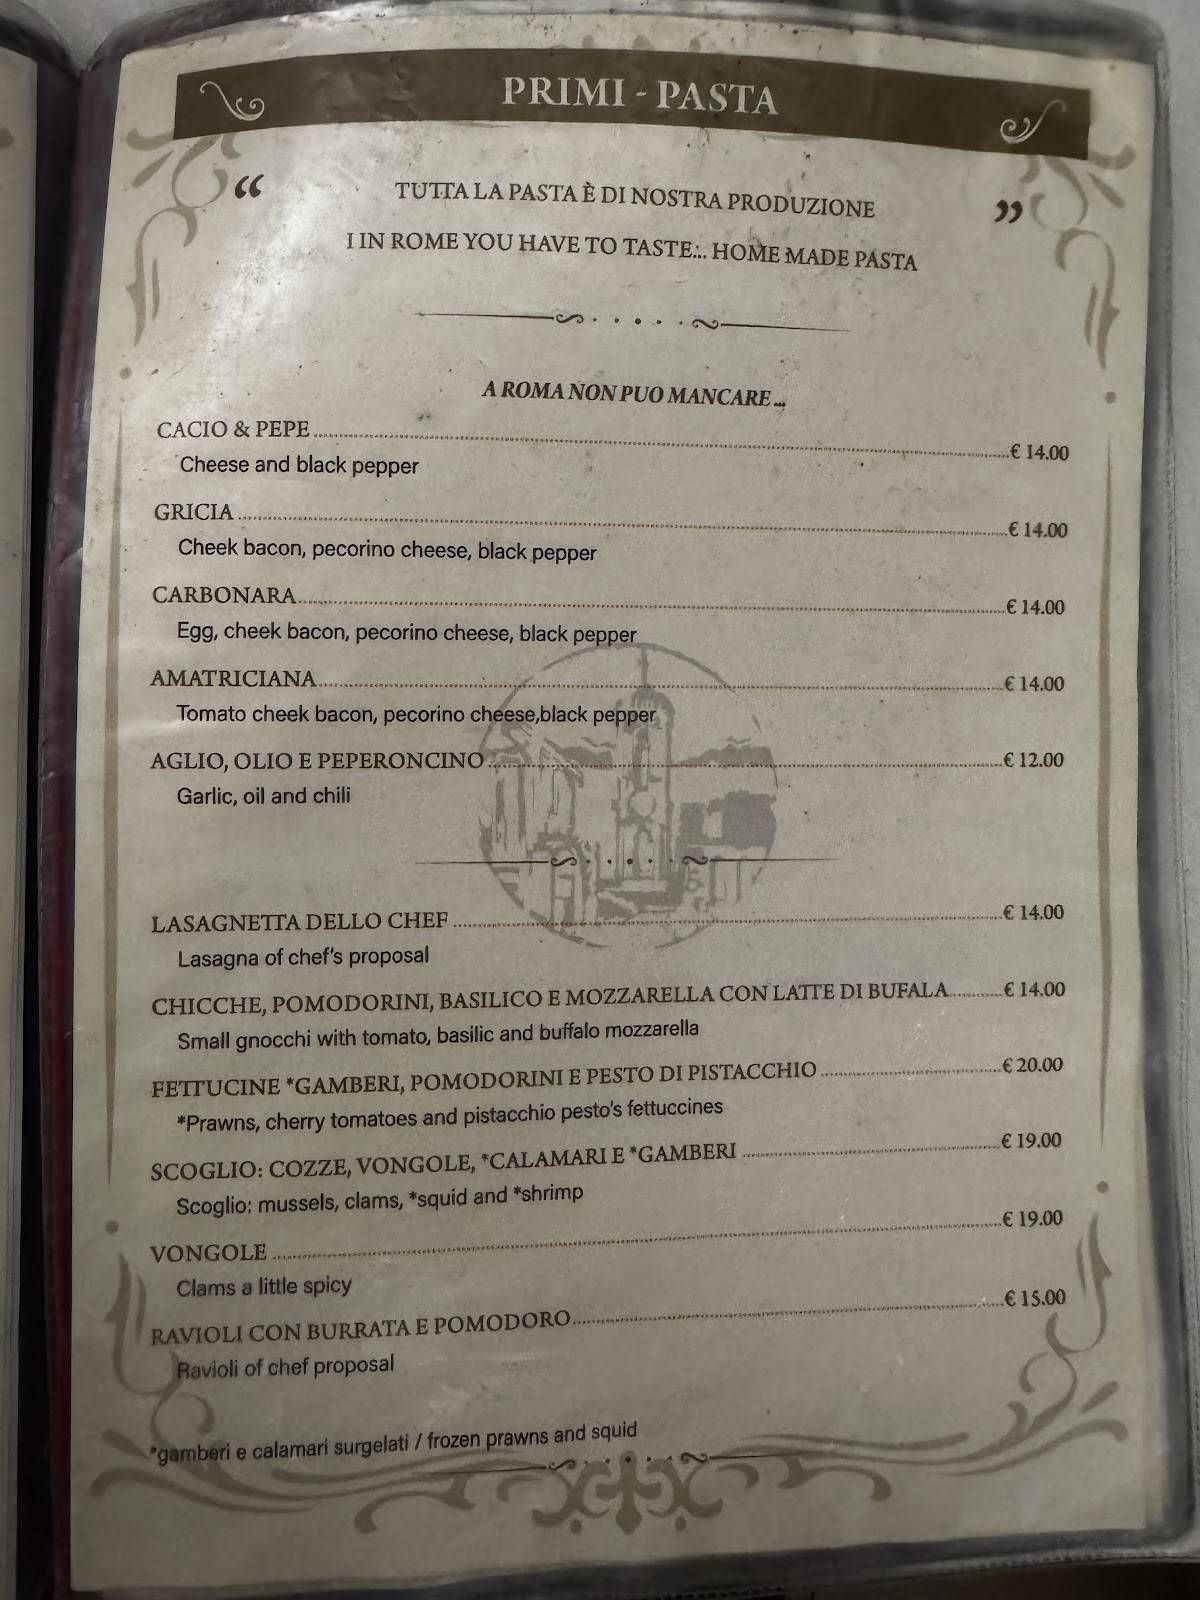 PRIMI - PASTA
“ TUTTA LA PASTA È DI NOSTRA PRODUZIONE ”
I IN ROME YOU HAVE TO TASTE... HOME MADE PASTA
A ROMA NON PUO MANCARE...
CACIO & PEPE € 14.00
Cheese and black pepper
GRICIA € 14.00
Cheek bacon, pecorino cheese, black pepper
CARBONARA € 14.00
Egg, cheek bacon, pecorino cheese, black pepper
AMATRICIANA € 14.00
Tomato cheek bacon, pecorino cheese,black pepper
AGLIO, OLIO E PEPERONCINO € 12.00
Garlic, oil and chili
LASAGNETTA DELLO CHEF € 14.00
Lasagna of chef's proposal
CHICCHE, POMODORINI, BASILICO E MOZZARELLA CON LATTE DI BUFALA € 14.00
Small gnocchi with tomato, basilic and buffalo mozzarella
FETTUCINE *GAMBERI, POMODORINI E PESTO DI PISTACCHIO € 20.00
*Prawns, cherry tomatoes and pistacchio pesto's fettuccines
SCOGLIO: COZZE, VONGOLE, *CALAMARI E *GAMBERI € 19.00
Scoglio: mussels, clams, *squid and *shrimp
VONGOLE € 19.00
Clams a little spicy
RAVIOLI CON BURRATA E POMODORO € 15.00
Ravioli of chef proposal
*gamberi e calamari surgelati / frozen prawns and squid